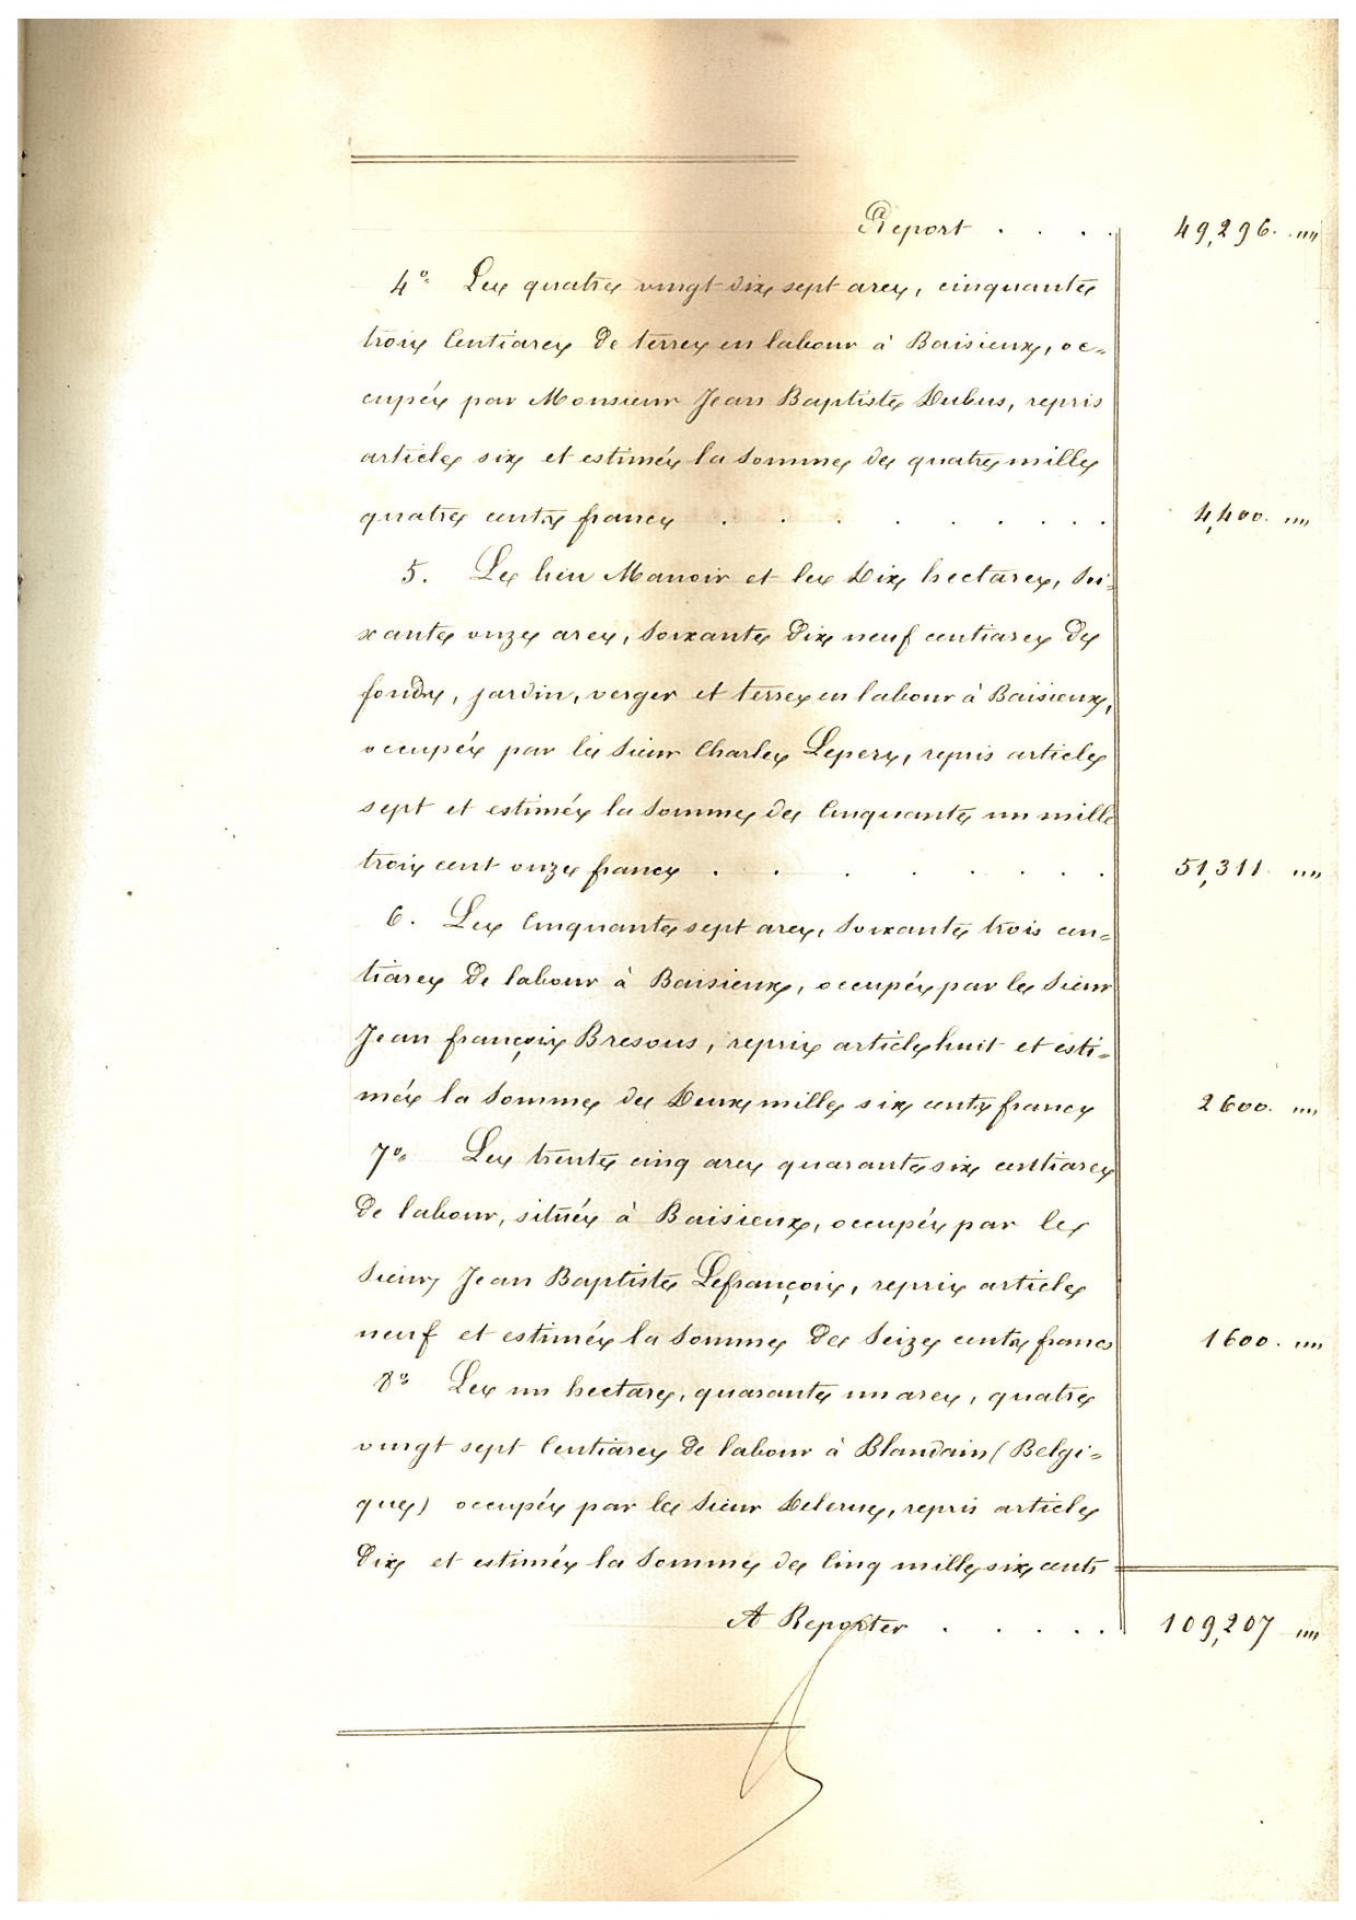 Report . . . . 49,296. "
4° Les quatre vingt dix sept ares, cinquante
trois Centiares de terre en labour à Baisieux, oc=
cupés par Monsieur Jean Baptiste Dubus, repris
article six et estimés la somme de quatre mille
quatre cents francs . . . . . . . 4,400. "
5. Le lieu Manoir et les Dix hectares, soi=
xante onze ares, soixante dix neuf centiares de
fonds, jardin, verger et terre en labour à Baisieux,
occupés par le sieur Charles Lepers, repris article
sept et estimés la somme de Cinquante un mille
trois cent onze francs . . . . . . . 51,311 "
6. Les Cinquante sept ares, soixante trois cen=
tiares de labour à Baisieux, occupés par le sieur
Jean françois Bresous, repris article huit et esti=
més la somme de Deux mille six cents francs 2600. "
7° Les trente cinq ares quarante six centiares
de labour, situés à Baisieux, occupés par le
sieur Jean Baptiste Lefrançois, repris article
neuf et estimés la somme de seize cents francs 1600. "
8° Les un hectare, quarante un ares, quatre
vingt sept Centiares de labour à Blandain (Belgi=
que) occupés par le sieur Delerue, repris article
Dix et estimés la somme de Cinq mille six cents
A Reporter . . . . . 109,207 "